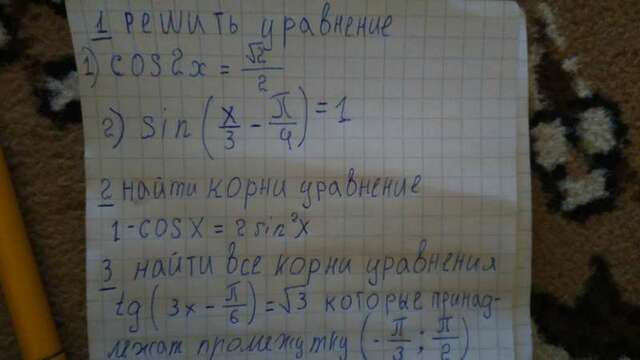 1 решить уравнение
1) cos2x = √2/2
2) sin(x/3 - π/4) = 1
2 найти корни уравнение
1-cosx = 2sin²x
3 найти все корни уравнения
tg(3x - π/6) = √3 которые принад-
лежат промежутку (-π/3; π/2)